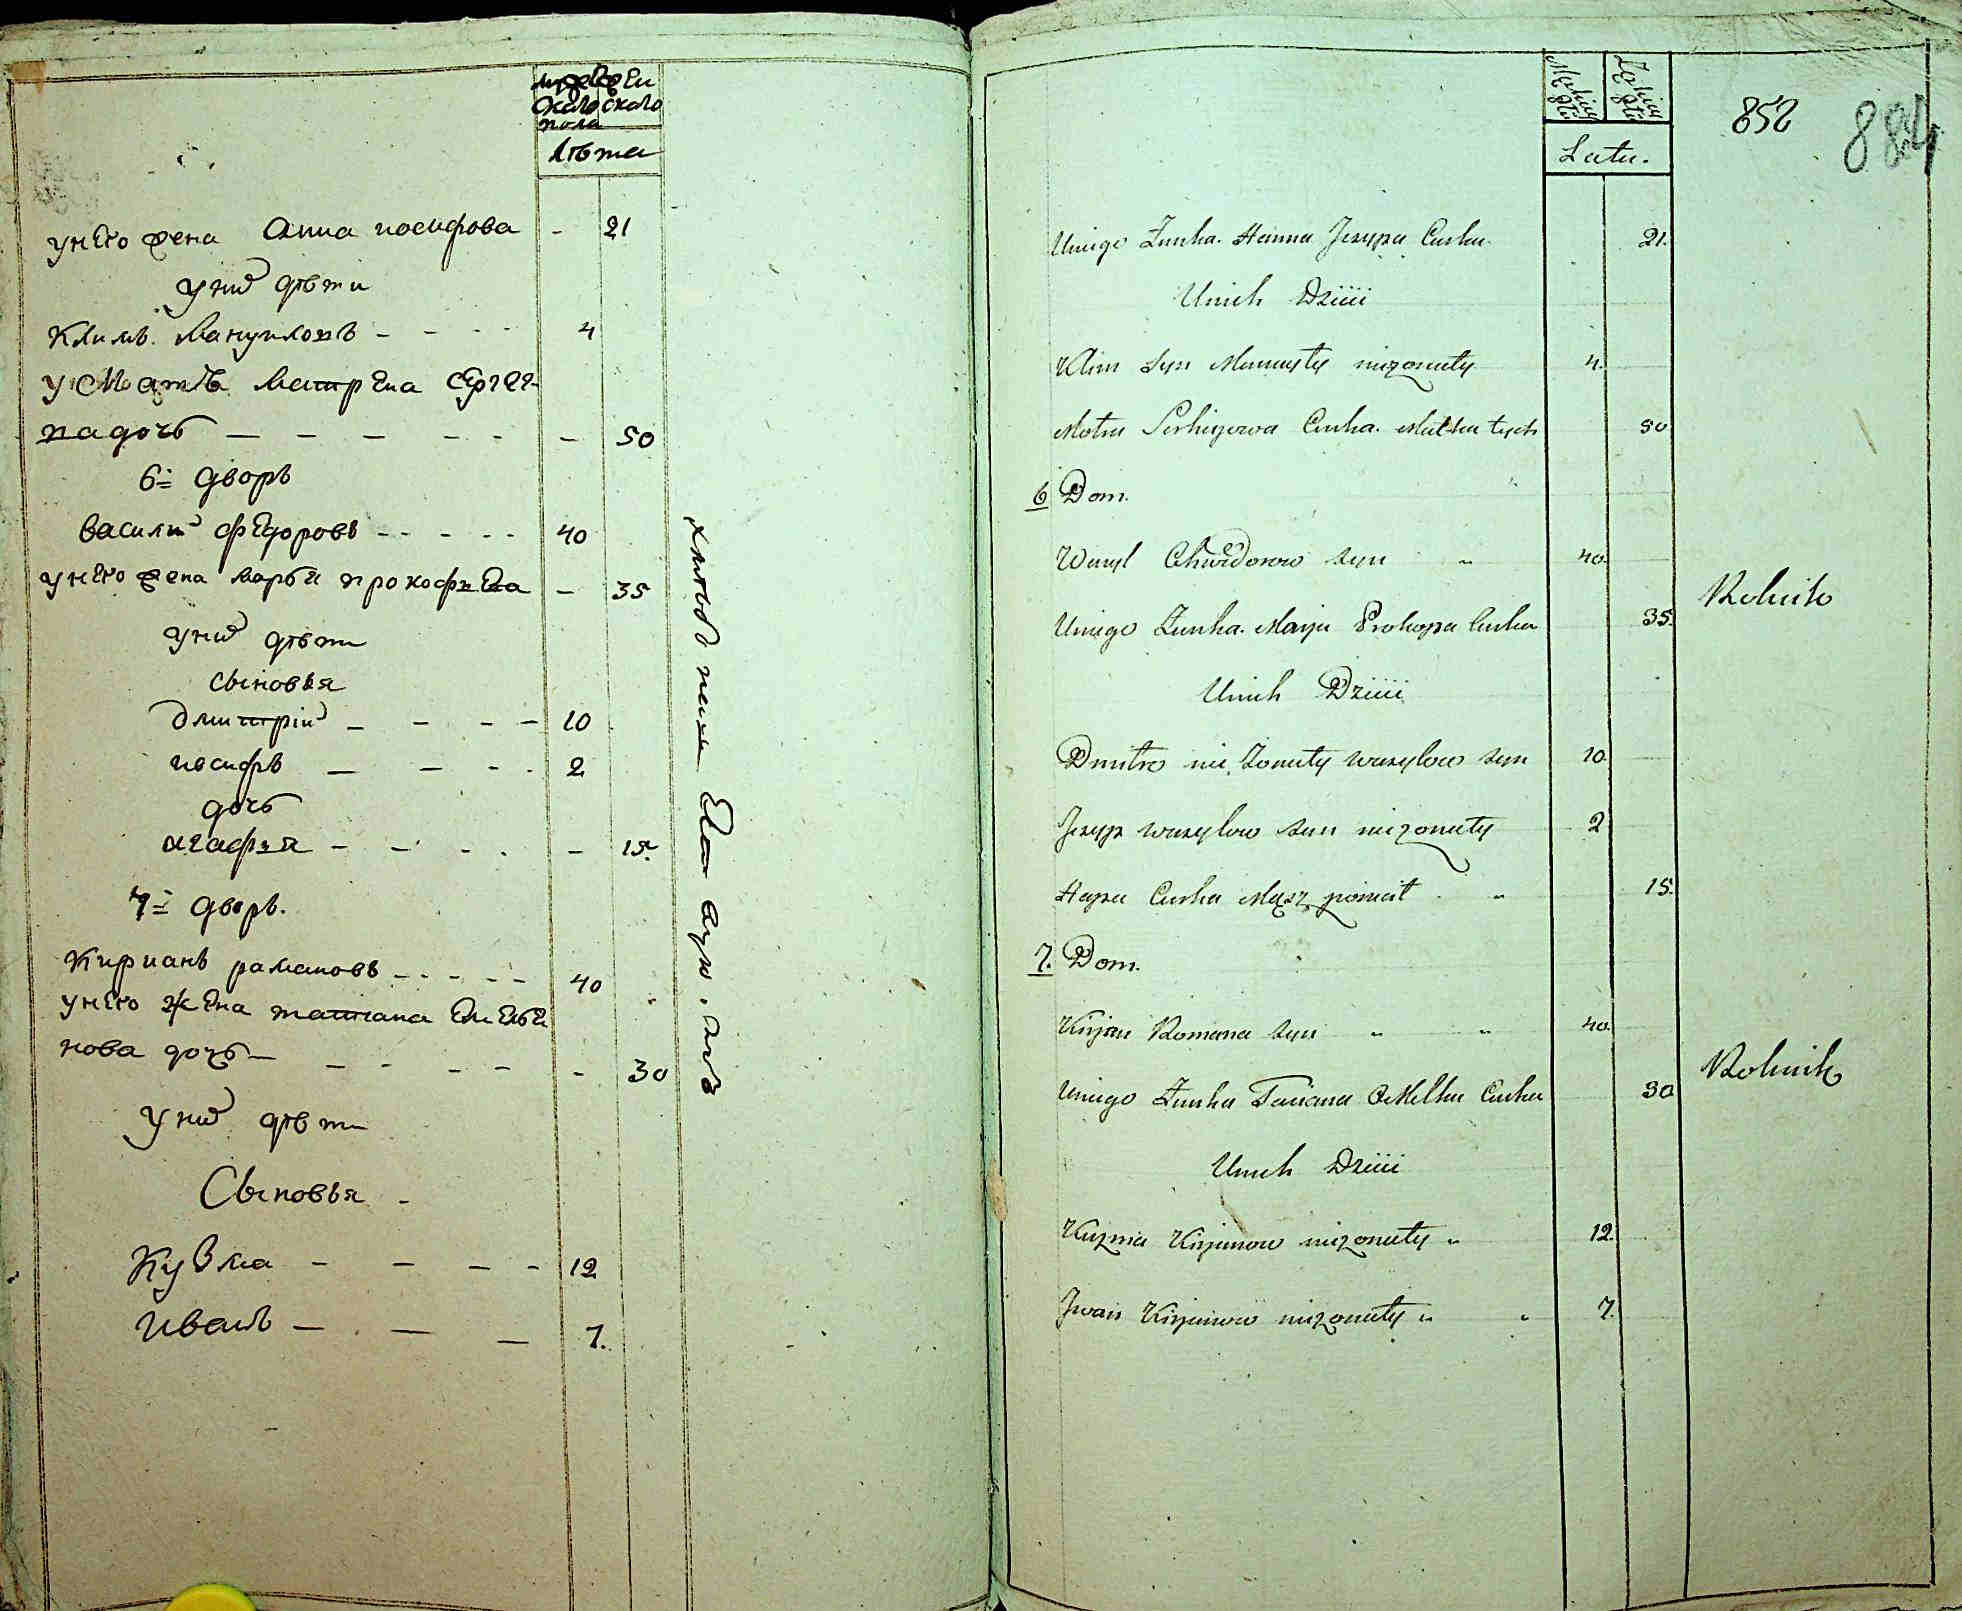 мужескаго пола
женскаго
лѣта
у него жена Анна иосифова - 21
у них дѣти
Климъ Мануиловъ - - - 4
мать Матрена Сергее-
ва дочь - - - - - 50
6й дворъ
Василий Федоровъ - - - - 40
у него жена Марья прокофьева - 35
у них дѣти
сыновья
Дмитрий - - - - 10
иосифъ - - - - 2
дочь
агафья - - - - - 15
7й дворъ.
Кириянъ романовъ - - - - 40
у него жена татиана Емелья
нова дочь - - - - - 30
у них дѣти
Сыновья -
Кузма - - - - 12
иванъ - - - 7.
852
884
Męskiey płci
Żeńskiey płci
Latu.
Uniego Żunka. Hanna Jozypa Curka. 21.
Unich Dziiii
Klim Syn Manuyły nieżonuty 4.
Motra Serhiyowa Curka. Matka tych 50
6 Dom.
Wasyl Chwedorow syn " 40.
Rolnik
Uniego Żunka. Marya Prokopa Curka 35.
Unich Dziiii
Dmitro nie żonuty wasylow syn 10.
Jozyp wasylow syn nieżonuty 2
Hapa Curka 15.
7. Dom.
Kiryan Romana syn " " 40.
Rolnik
Uniego Żunka Taciana Omelka Curka 30
Unich Dziiii
Kuzma Kiryanow nieżonuty " 12.
Jwan Kiryanow nieżonuty " " 7.